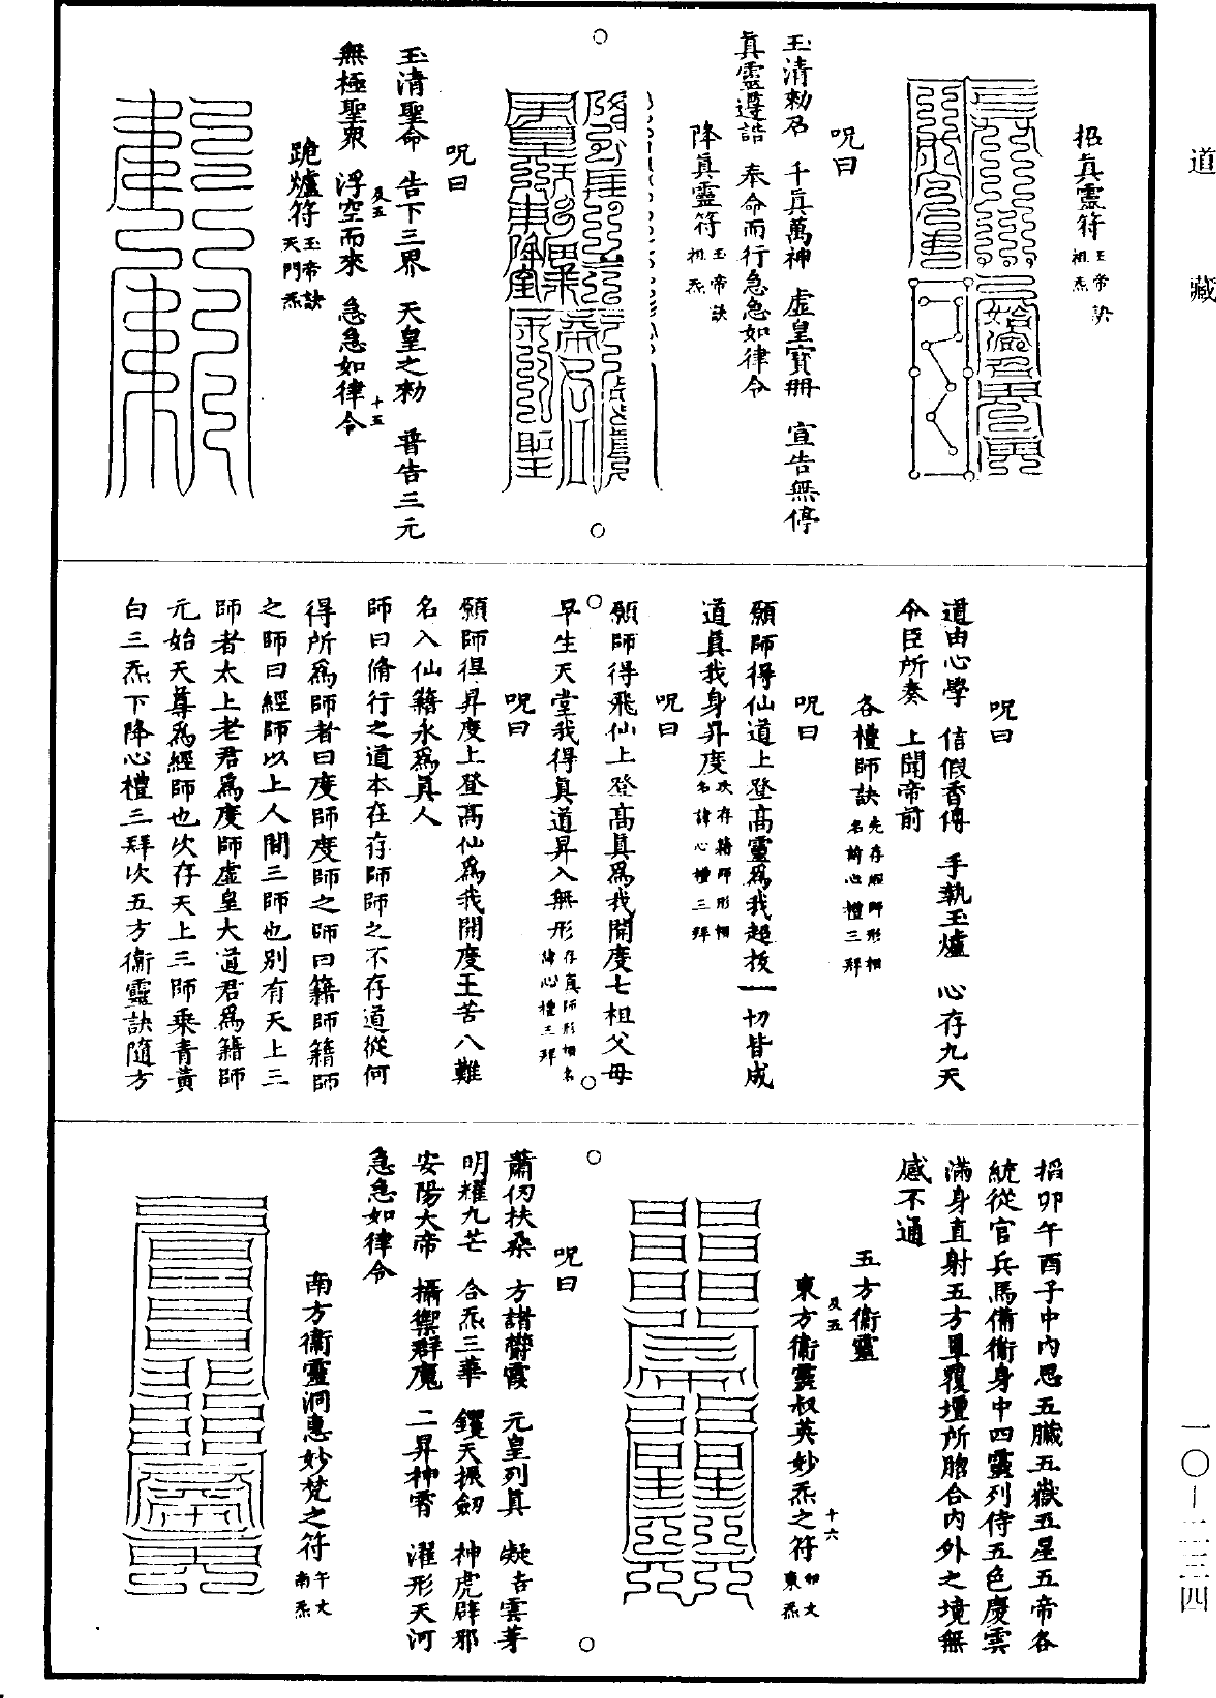 道藏
招真靈符玉帝訣祖炁
呪曰
玉清勑召　千真萬神　虛皇寶冊　宣告無停
真靈遵誥　奉命而行急急如律令
降真靈符玉帝訣祖炁
呪曰
玉清聖命　告下三界　天皇之勑　普告三元
及五　十五
無極聖眾　浮空而來　急急如律令
跪爐符玉帝訣天門炁
呪曰
道由心學　信假香傳　手執玉爐　心存九天
令臣所奏　上聞帝前
各禮師訣先存度師形相名諱心禮三拜
呪曰
願師得仙道上登高靈爲我超拔一切皆成
道真我身昇度次存籍師形相名諱心禮三拜
呪曰
願師得飛仙上登高真爲我開度七祖父母
早生天堂我得真道昇入無形存真師形相名諱心禮三拜
呪曰
願師得昇度上登高仙爲我開度王苦八難
名入仙籍永爲真人
師曰脩行之道本在存師師之不存道從何
得所爲師者曰度師度師之師曰籍師籍師
之師曰經師以上人間三師也別有天上三
師者太上老君爲度師虛皇大道君爲籍師
元始天尊爲經師也次存天上三師乘青黃
白三炁下降心禮三拜次五方衞靈訣隨方
招卯午酉子中內思五臟五嶽五星五帝各
統從官兵馬備衞身中四靈列侍五色慶雲
滿身直射五方罩覆壇所脗合內外之境無
感不通
五方衞靈
及五　十六
東方衞靈叔英妙炁之符卯文東炁
呪曰
蕭仞扶桑　方諧鬱霞　元皇列真　凝吉雲芽
明耀九芒　合炁三華　钁天振劒　神虎辟邪
安陽大帝　攝禦群魔　二昇神霄　濯形天河
急急如律令
南方衞靈洞惠妙梵之符午文南炁
一〇－二三四